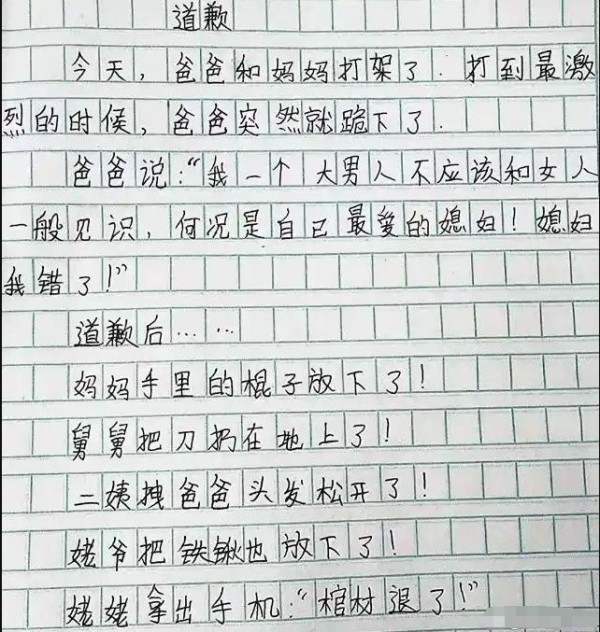 道歉
今天，爸爸和妈妈打架了．打到最激
烈的时候，爸爸突然就跪下了．
爸爸说："我一个大男人不应该和女人
一般见识，何况是自己最爱的媳妇！媳妇
我错了！"
道歉后……
妈妈手里的棍子放下了！
舅舅把刀扔在地上了！
二姨拽爸爸头发松开了！
姥爷把铁锹也放下了！
姥姥拿出手机："棺材退了！"